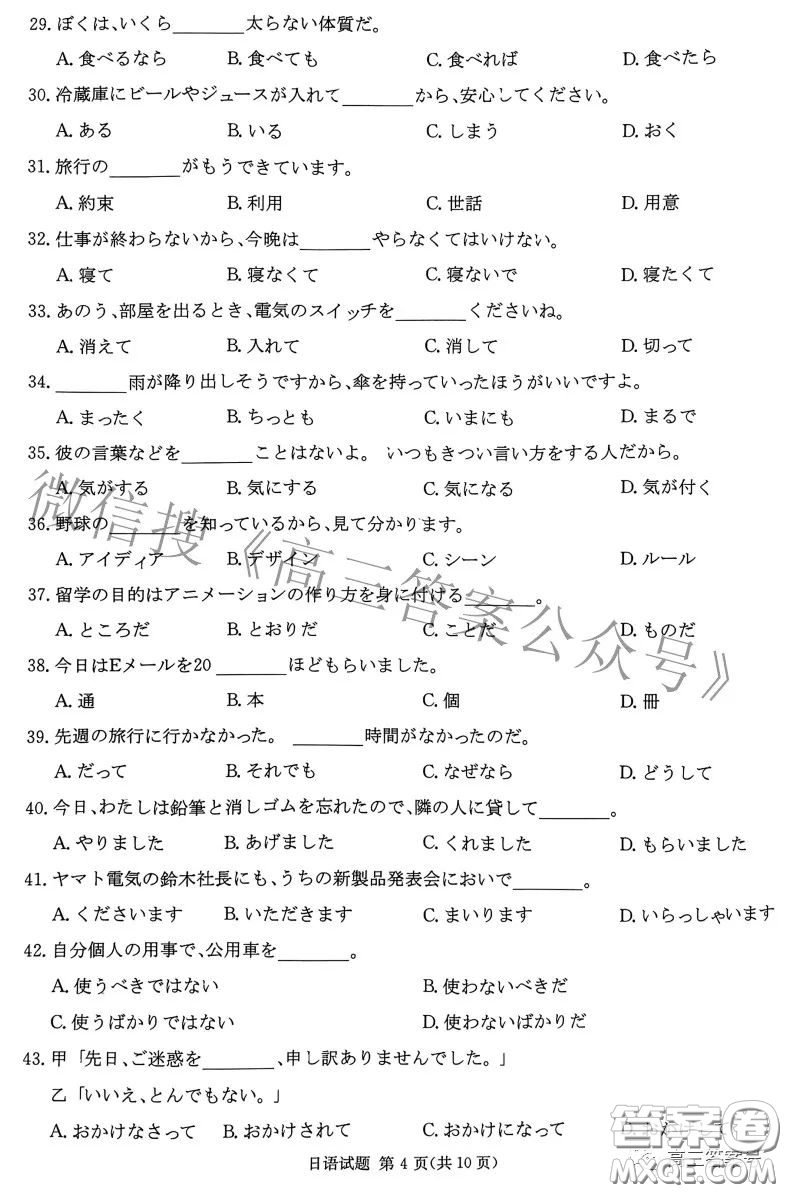 29. ぼくは、いくら_______太らない体質だ。
A. 食べるなら B. 食べても C. 食べれば D. 食べたら
30. 冷蔵庫にビールやジュースが入れて_______から、安心してください。
A. ある B. いる C. しまう D. おく
31. 旅行の_______がもうできています。
A. 約束 B. 利用 C. 世話 D. 用意
32. 仕事が終わらないから、今晩は_______やらなくてはいけない。
A. 寝て B. 寝なくて C. 寝ないで D. 寝たくて
33. あのう、部屋を出るとき、電気のスイッチを_______くださいね。
A. 消えて B. 入れて C. 消して D. 切って
34. _______雨が降り出しそうですから、傘を持っていったほうがいいですよ。
A. まったく B. ちっとも C. いまにも D. まるで
35. 彼の言葉などを_______ことはないよ。 いつもきつい言い方をする人だから。
A. 気がする B. 気にする C. 気になる D. 気が付く
36. 野球の_______を知っているから、見て分かります。
A. アイディア B. デザイン C. シーン D. ルール
37. 留学の目的はアニメーションの作り方を身に付ける_______。
A. ところだ B. とおりだ C. ことだ D. ものだ
38. 今日はEメールを20 _______ほどもらいました。
A. 通 B. 本 C. 個 D. 冊
39. 先週の旅行に行かなかった。 _______時間がなかったのだ。
A. だって B. それでも C. なぜなら D. どうして
40. 今日、わたしは鉛筆と消しゴムを忘れたので、隣の人に貸して_______。
A. やりました B. あげました C. くれました D. もらいました
41. ヤマト電気の鈴木社長にも、うちの新製品発表会においで_______。
A. くださいます B. いただきます C. まいります D. いらっしゃいます
42. 自分個人の用事で、公用車を_______。
A. 使うべきではない B. 使わないべきだ
C. 使うばかりではない D. 使わないばかりだ
43. 甲「先日、ご迷惑を_______、申し訳ありませんでした。」
乙「いいえ、とんでもない。」
A. おかけなさって B. おかけされて C. おかけになって
日语试题 第 4 页(共 10 页)
微信搜《高三答案公众号》
答案卷
高三答案号
MXQE.COM